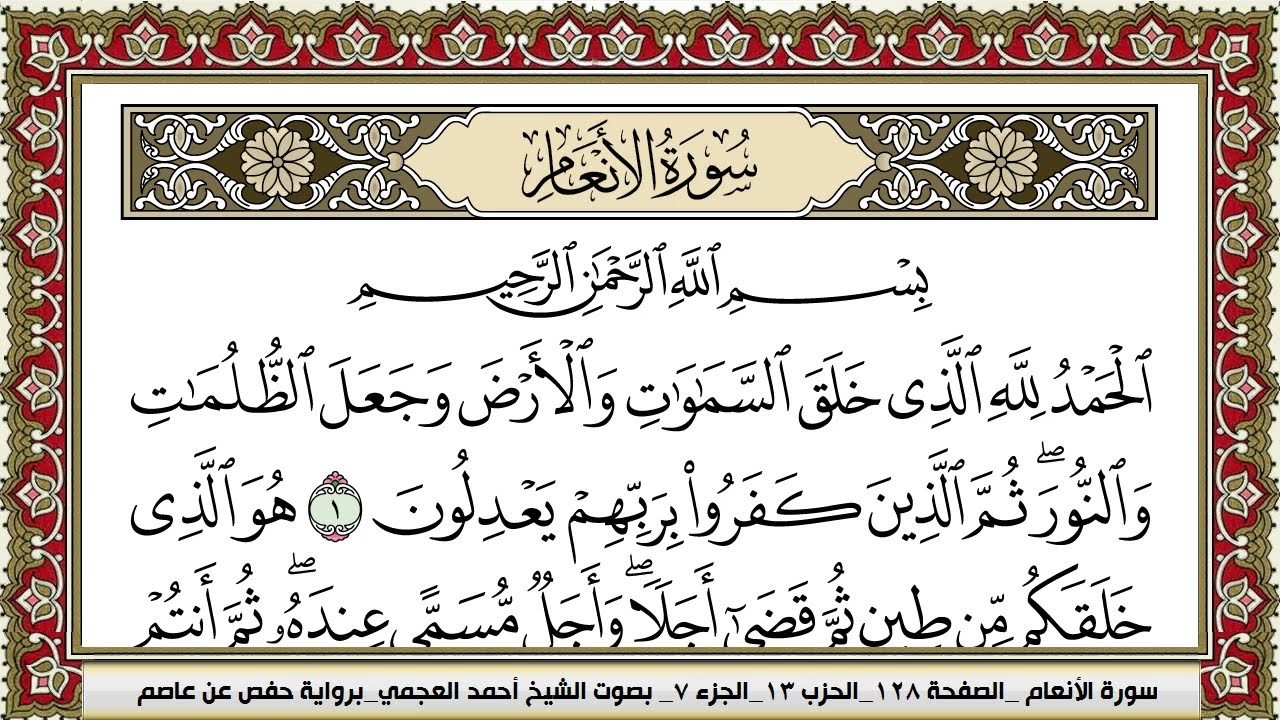 سُورَةُ الأَنْعَامِ
بِسْمِ ٱللَّهِ ٱلرَّحْمَٰنِ ٱلرَّحِيمِ
ٱلْحَمْدُ لِلَّهِ ٱلَّذِى خَلَقَ ٱلسَّمَٰوَٰتِ وَٱلْأَرْضَ وَجَعَلَ ٱلظُّلُمَٰتِ
وَٱلنُّورَ ۖ ثُمَّ ٱلَّذِينَ كَفَرُوا۟ بِرَبِّهِمْ يَعْدِلُونَ ١ هُوَ ٱلَّذِى
خَلَقَكُم مِّن طِينٍ ثُمَّ قَضَىٰٓ أَجَلًا ۖ وَأَجَلٌ مُّسَمًّى عِندَهُۥ ۖ ثُمَّ أَنتُمْ
سورة الأنعام _الصفحة ١٢٨_الحزب ١٣_الجزء ٧_ بصوت الشيخ أحمد العجمي_برواية حفص عن عاصم